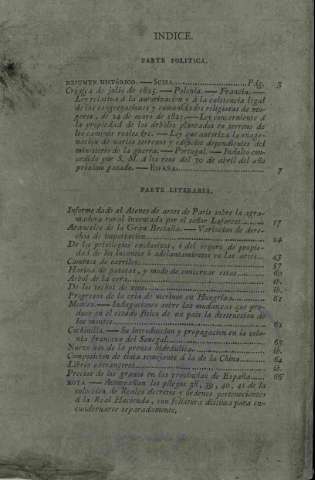 INDICE.
PARTE POLITICA.
RESUMEN HISTÓRICO. — SUIZA. Pág. 3
Crónica de julio de 1825. — Polonia. — Francia. —
Ley relativa á la autorizacion y á la existencia legal
de las congregaciones y comunidades religiosas de mu-
geres, de 24 de mayo de 1825. — Ley concerniente á
la propiedad de los árboles plantados en terreno de
los caminos reales &c. — Ley que autoriza la enage-
nacion de varios terrenos y edificios dependientes del
ministerio de la guerra. — Portugal. — Indulto con-
cedido por S. M. á los reos del 30 de abril del año
próximo pasado. — ESPAÑA. 7
PARTE LITERARIA.
Informe dado al Ateneo de artes de Paris sobre la agra-
madora rural inventada por el señor Laforest. 17
Aranceles de la Gran Bretaña. — Variacion de dere-
chos de importacion 24
De los privilegios esclusivos, ó del seguro de propie-
dad de los inventos ó adelantamientos en las artes. 43
Camino de carriles. 57
Harina de patatas, y modo de conservar estas 60
Arbol de la cera. ib.
De los techos de zinc. ib.
Progresos de la cria de merinos en Hungría. 61
Montes. — Indagaciones sobre las mudanzas que pro-
duce en el estado físico de un pais la destruccion de
los montes. 62
Cochinilla. — Su introduccion y propagacion en la colo-
nia francesa del Senegal.
Nuevo uso de la prensa hidráulica. ib.
Composicion de tinta semejante á la de China. 64
Libros extrangeros. ib.
Precios de los granos en las provincias de España.
NOTA. — Acompañan los pliegos 38, 39, 40, 41 de la
coleccion de Reales decretos y órdenes pertenecientes
á la Real Hacienda, con foliatura distinta para en-
cuadernarse separadamente.